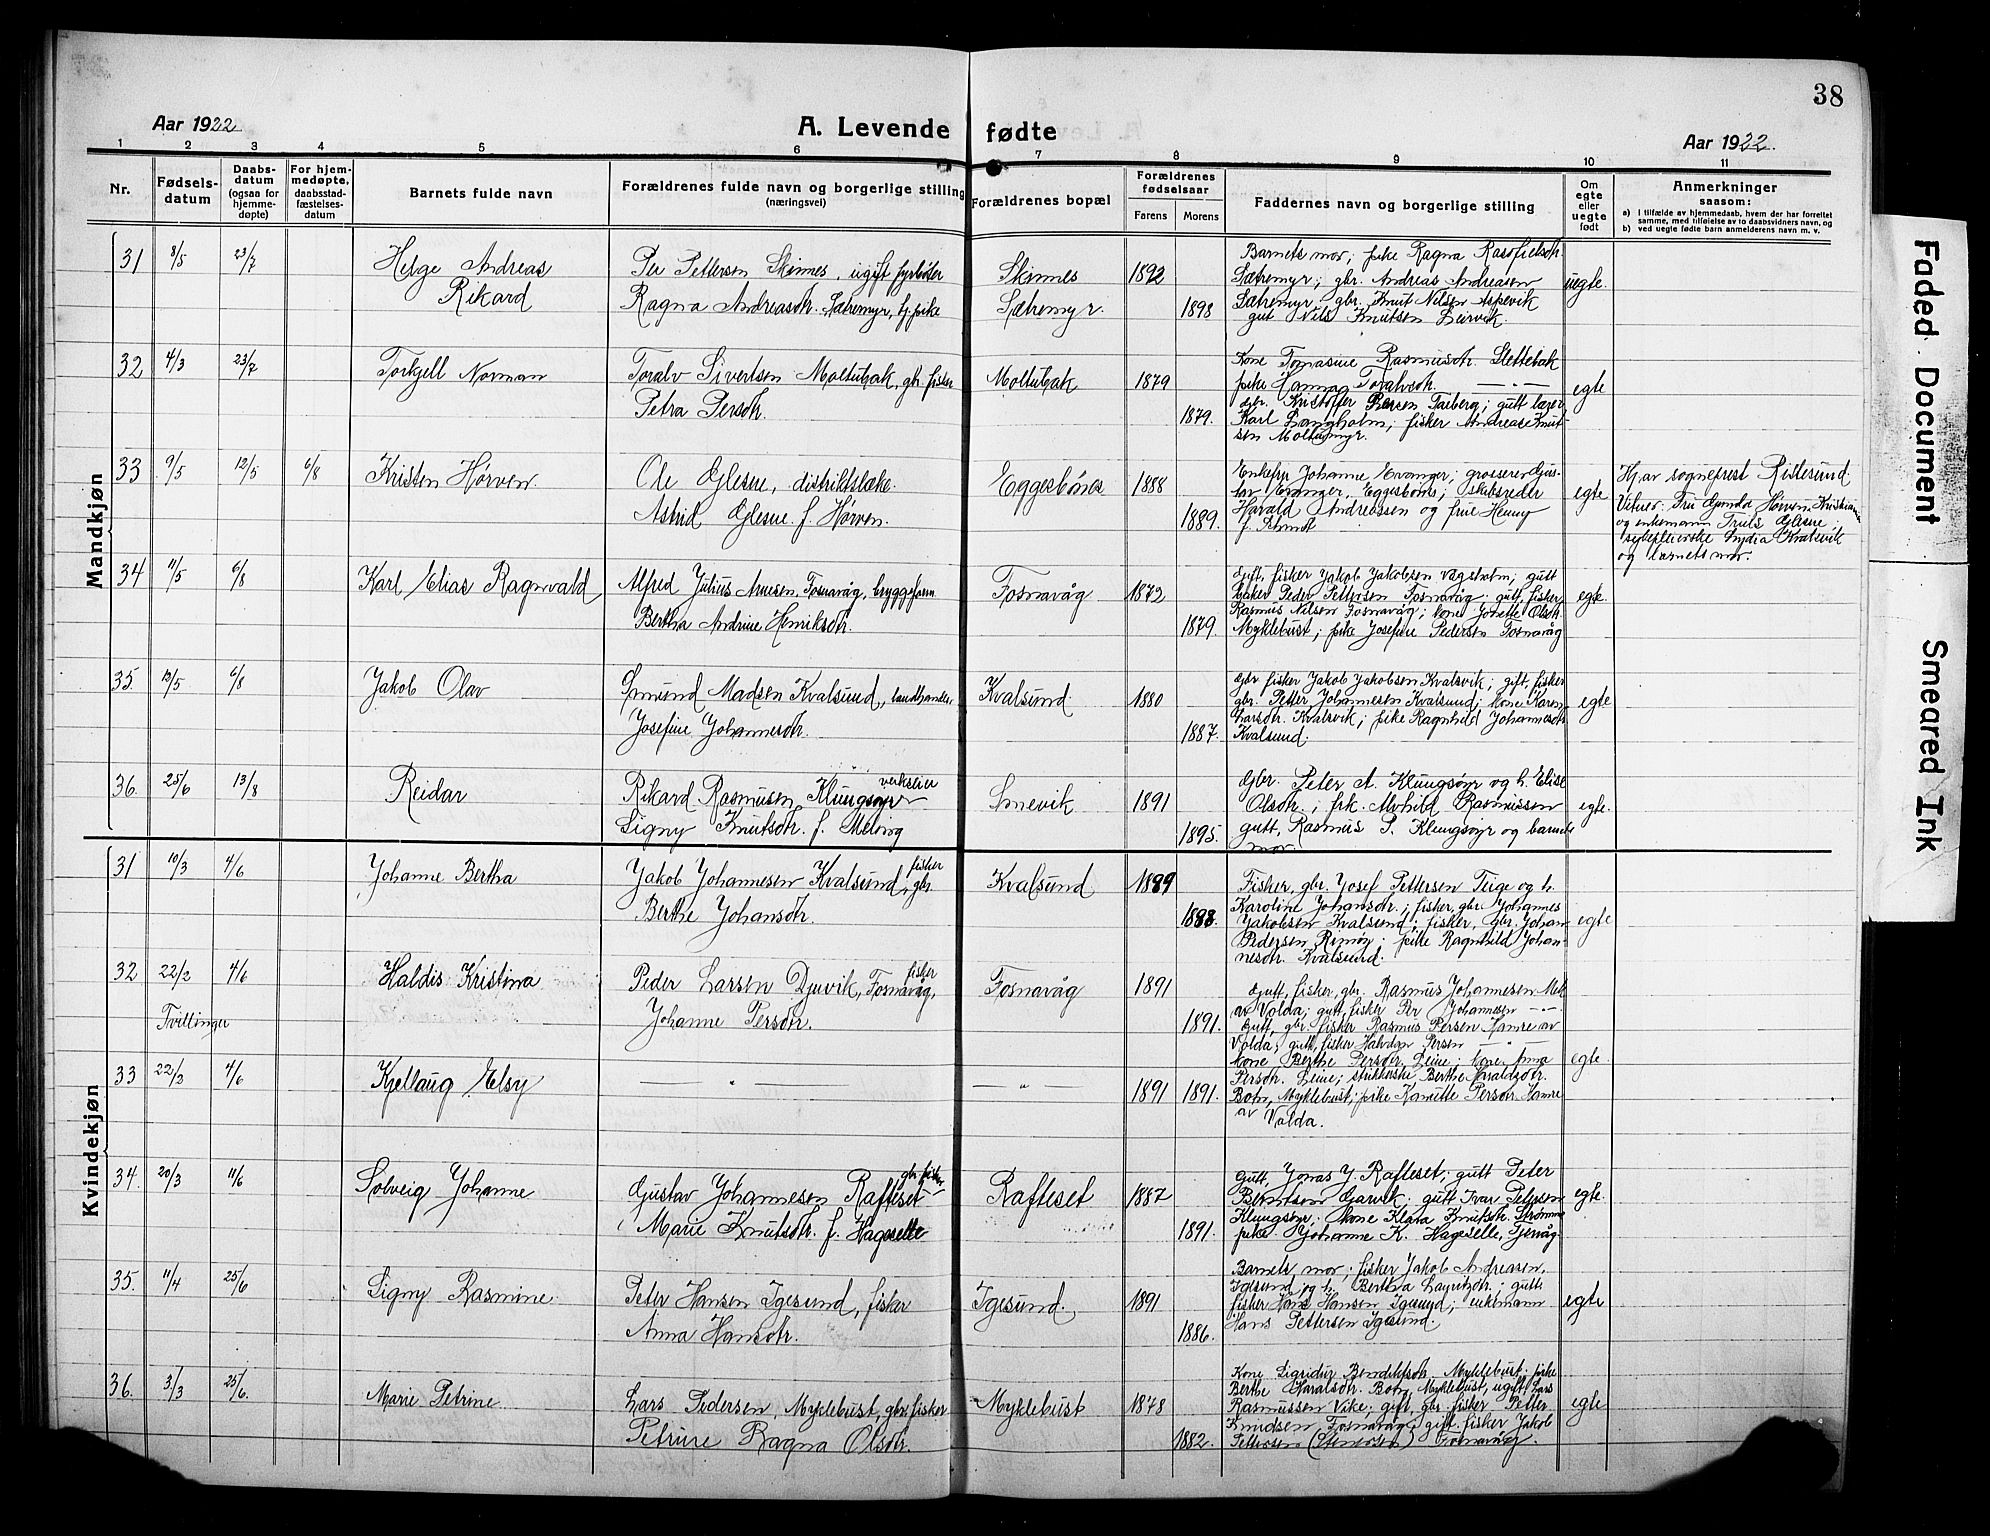 38
Aar 1922
A. Levende fødte
Aar 1922.
1 2 3 4 5 6 7 8 9 10 11
Nr.
Fødselsdatum
Daabsdatum (ogsaa for hjemmedøpte)
For hjemmedøpte, daabsstadfæstelsesdatum
Barnets fulde navn
Forældrenes fulde navn og borgerlige stilling (næringsvei)
Forældrenes bopæl
Forældrenes fødselsaar
Farens Morens
Faddernes navn og borgerlige stilling
Om egte eller uegte født
Anmerkninger saasom:
a) I tilfælde av hjemmedaab, hvem der har forrettet samme, med tilføielse av to daabsvidners navn, og
b) ved uegte fødte barn anmelderens navn m. v.
Mandkjøn
31 8/5 23/7 Helge Andreas Per Pettersen Skinnes, ugift fyrbøter Skinnes 1892 Barnets mor; pike Ragna
Rikard Ragna Andreasdtr. Sætremyr, pike Sætremyr. 1898 uegte.
Sætremyr; gbr. Andreas Andreasen
Sætremyr, gbr. Knut Nilsen Aspevik
gut Nils Knutsen Leirvik.
32 4/3 23/7 Torkjell Norman Toralv Sivertsen Moltubak, gbr. fisker Moltubak 1879 Kone Tomasine Rasmusdtr. Slettebak
Petra Persdtr. 1879. egte
pike Hanna Toralvsdtr. — " —
gbr. Kristoffer gutt lærer
Karl Langholm; fisker Andreas Knut-
sen Moltumyr.
33 9/5 12/5 6/8 Kristen Hørven. Ole Glesne, distriktslæke. Eggesbönes 1888 Enkefru Johanne Evanger; grosserer Gus-
Astrid Glesne f. Hørven. 1889. egte
tav Evanger, Eggesbönes; skibsreder
Harald Andreassen og frue Henny
Hj. av sogneprest Ristesund.
Vitner: Fru Gunda Hørven, Kristiania
og enkemann Truls Glesne.
sykepleierske Lydia Kvalsvik
og barnets mor.
34 11/5 6/8 Karl Elias Ragnvald Alfred Julius Arnesen, Fosnavåg, bryggeform. Fosnavåg 1872 Gift, fisker Jakob Jakobsen Vågsholm; gutt
Bertha Andrine Henriksdtr. 1879. egte.
baker Peder Pettersen Fosnavåg; gutt, fisker
Rasmus Nilsen Fosnavåg; kone Jonette Olsdtr.
Myklebust; pike Josefine Pedersen Fosnavåg
35. 13/5 6/8 Jakob Olav Osmund Madsen Kvalsund, landhandler Kvalsund 1880 Gbr fisker Jakob Jakobsen Kvalsvik; gift, fisker
Josefine Johannesdtr. 1887. egte
gbr. Petter Johannesen Kvalsund; kone Karen
Larsdtr. Kvalsvik; pike Ragnhild Johannesdtr.
Kvalsund.
36. 25/6 13/8 Reidar Rikard Rasmusen Klungsøyr verkseier Smevik 1891 Gbr. Peter A. Klungsøyr og h. Elise
Signy Knutsdtr. f. Meking 1895. egte.
Olsdtr.; frk. Alvhild Rasmussen
gutt, Rasmus P. Klungsøyr og barnets
mor.
Kvindekjøn
31 10/3 4/6 Johanne Bertha Jakob Johannesen Kvalsund, fisker gbr. Kvalsund 1889 Fisker, gbr. Josef Pettersen Teige og h.
Berthe Johansdtr. 1888. egte
Karoline Johansdtr.; fisker, gbr. Johannes
Jakobsen Kvalsund; fisker, gbr. Johan
Pedersen Rimöy; pike Ragnhild Johan-
nesdtr. Kvalsund.
32 22/2 4/6 Haldis Kristina Peder Larsen Djuvik, Fosnavåg, fisker Fosnavåg 1891 Gutt, fisker, gbr. Rasmus Johannesen Mek
Tvillinger Johanne Persdtr. 1891.
av Volda; gutt, fisker Per Johannesen — " —
Gutt, gbr. fisker Rasmus Persen Hamre av
Volda; gutt, fisker Halvdan Persen — " —
33 22/2 4/6 Kjellaug Elsy — " — — " 1891 1891. egte.
kone Berthe Persdtr. Leine; kone Anna
Persdtr. Leine; strikkerske Berthe Haraldsdtr.
Botn, Myklebust; pike Kamitte Persdtr. Hamre
av Volda.
34. 20/3 11/6 Solveig Johanne Gustav Johannesen Rafteset gbr. fisker Rafteset 1887 Gutt, Jonas J. Rafteset; gutt Peter
Marie Knutsdtr. f. Hageselle 1891. egte.
Berntsen Garvik; gutt Ivar Petersen
Klungsøyr; kone Klara Knutsdtr. Strømme
pike Johanne K. Hageselle, Tjervåg.
35. 11/4 25/6 Signy Rasmine Peter Hansen Igesund, fisker Igesund. 1891 Barnets mor; fisker Jakob Andreasen,
Anna Hansdtr. 1886. egte
Igesund og h. Bertha Lauritzdtr.; gutt
fisker Hans Hansen Igesund; enkemann
Hans Pettersen Igesund.
36. 3/3 25/6. Marie Petrine Lars Pedersen, Myklebust, gbr. fisker Myklebust 1878 Kone Sigridur Bendiktsdtr. Myklebust; pike
Petrine Ragna Olsdtr. 1882. egte
Berthe Haralsdtr. Botn, Myklebust, ugift Lars
Rasmussen Vike; gift, gbr. fisker Petter
Knudsen Fosnavåg; gift fisker Jakob
Pettersen Fosnavåg.
Faded Document
Smeared Ink